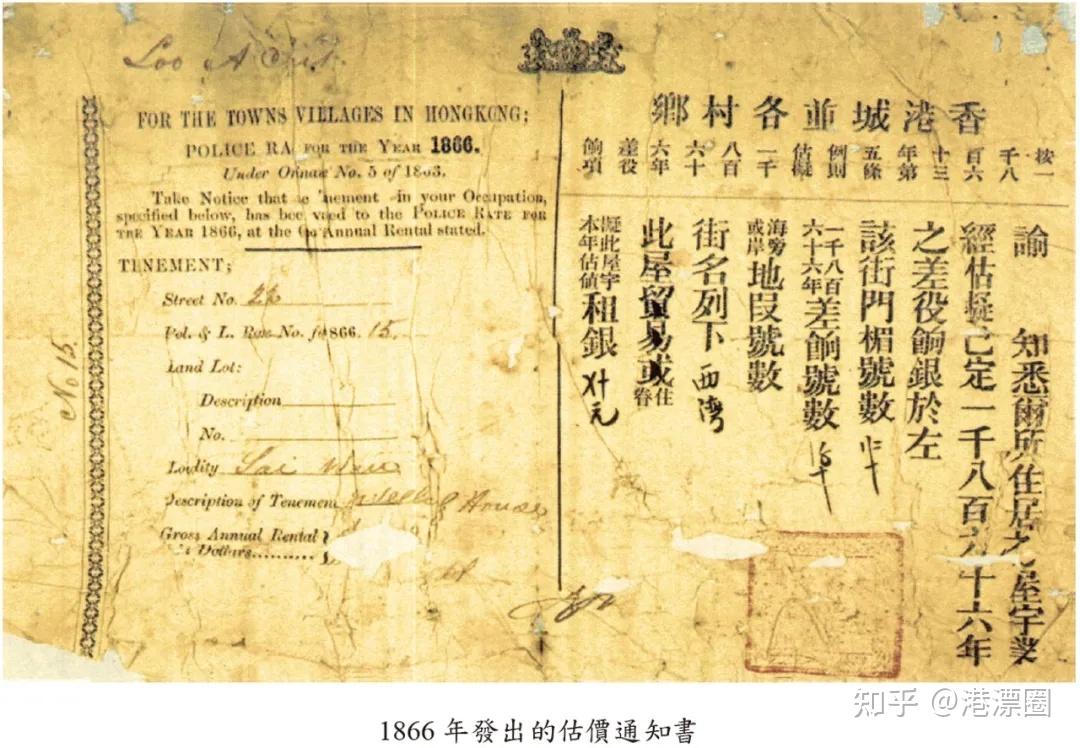 Loo A
FOR THE TOWNS VILLAGES IN HONGKONG;
POLICE RA FOR THE YEAR 1866.
Under No. 5 of 1863.
Take Notice that nement in your Occupation,
specified below, has bee to the POLICE RATE FOR
THE YEAR 1866, at the Annual Rental stated.
TENEMENT;
Street No.
Pol. & L. Rate No. for 1866. 15.
Land Lot:
Description
No.
Locality Sai Wan
Description of Tenement House
Gross Annual Rental
Dollars
No 15.
香港城並各村鄉
按一千八百六十三年第五條例則估擬一千八百六十六年差役餉項
諭 知悉爾所住居之屋宇業
經估擬已定一千八百六十六年
之差役餉銀於左
該街門楣號數
一千八百六十六年差餉號數
海旁或岸地段號數
街名列下 西灣
此屋貿易或住眷
擬此屋宇本年估值租銀 〤十元
知乎 @港漂圈
1866 年發出的估價通知書